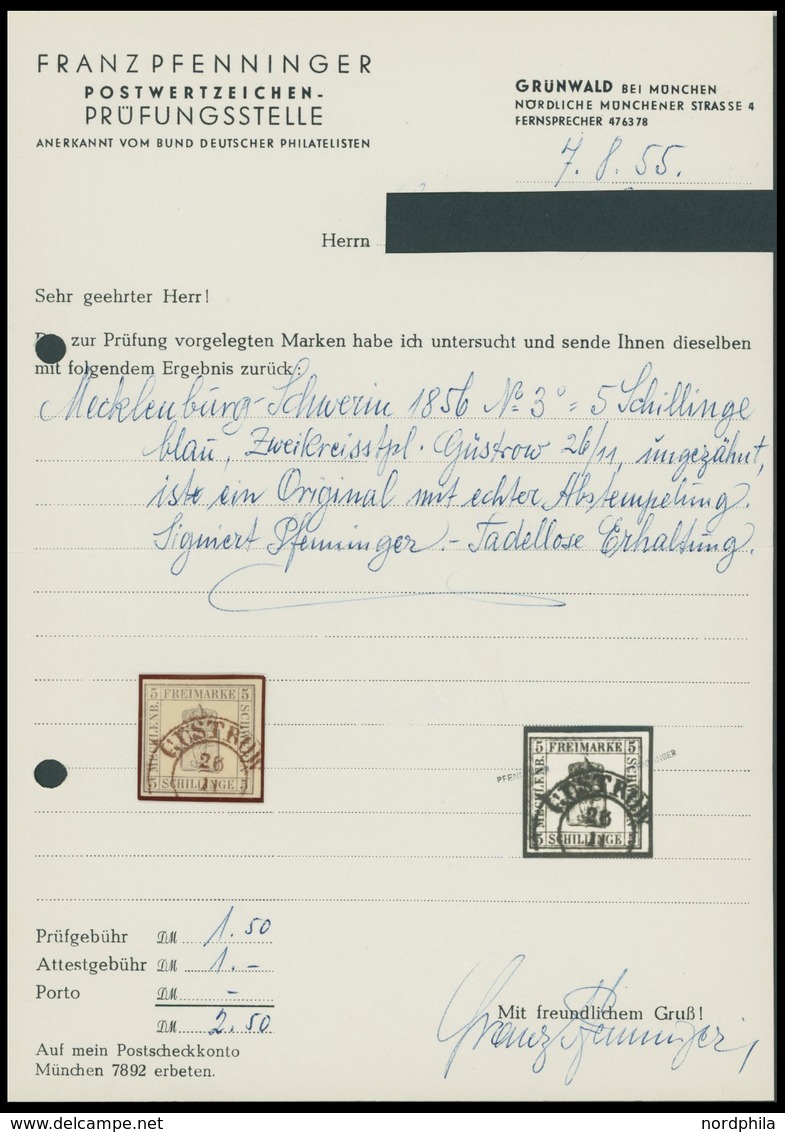 FRANZ PFENNINGER
POSTWERTZEICHEN-
PRÜFUNGSSTELLE
ANERKANNT VOM BUND DEUTSCHER PHILATELISTEN
GRÜNWALD BEI MÜNCHEN
NÖRDLICHE MÜNCHENER STRASSE 4
FERNSPRECHER 476378
7. 8. 55.
Herrn
Sehr geehrter Herr!
zur Prüfung vorgelegten Marken habe ich untersucht und sende Ihnen dieselben
mit folgendem Ergebnis zurück:
Mecklenburg-Schwerin 1856 No 3o = 5 Schillinge
blau, Zweikreisstpl. Güstrow 26/11, ungezähnt,
ist ein Original mit echter Abstempelung.
Signiert Pfenninger. - Tadellose Erhaltung.
5 FREIMARKE 5
MECKLENB. SCHWERIN
GÜSTROW
26
11
5 SCHILLINGE 5
PFENNINGER PFENNINGER
5 FREIMARKE 5
MECKLENB. SCHWERIN
GÜSTROW
26
11
5 SCHILLINGE 5
Prüfgebühr DM 1.50
Attestgebühr DM 1.-
Porto DM -
DM 2.50
Auf mein Postscheckkonto
München 7892 erbeten.
Mit freundlichem Gruß!
Franz Pfenninger
nordphila
www.delcampe.net